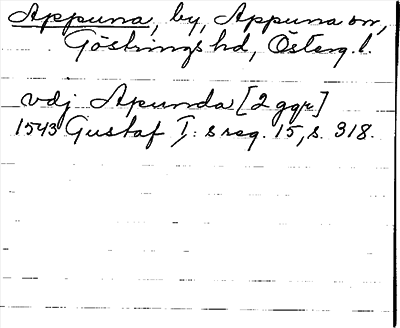 Appuna, by, Appuna sn,
Göstrings hd, Österg. l.
vdj Apunda [2 ggr]
1543 Gustaf I: s reg. 15, s. 318.